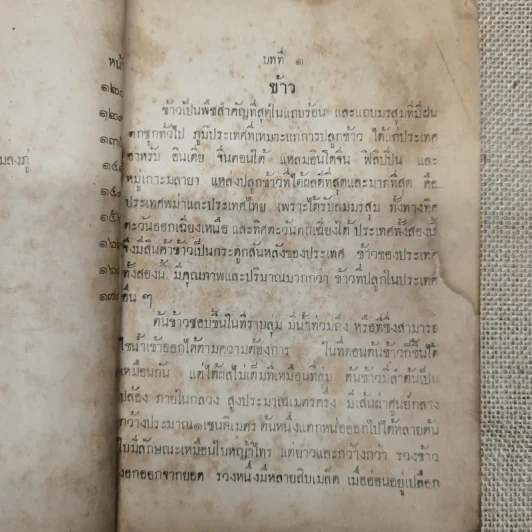 หน้า
๑๒๑
๑๓๕
มลงภู่
บทที่ ๑
ข้าว
ข้าวเป็นพืชสำคัญที่สุดในแถบร้อน และแถบมรสุมที่มีฝน
ตกชุกทั่วไป ภูมิประเทศที่เหมาะแก่การปลูกข้าว ได้แก่ประเทศ
อาหรับ อินเดีย จีนตอนใต้ แหลมอินโดจีน ฟิลิปปิน และ
หมู่เกาะมลายา แหล่งปลูกข้าวที่ได้ผลดีที่สุดและมากที่สุด คือ
ประเทศพม่าและประเทศไทย เพราะได้รับลมมรสุม ทั้งทางทิศ
ตะวันออกเฉียงเหนือ และทิศตะวันตกเฉียงใต้ ประเทศทั้งสองนี้
จึงมีสินค้าข้าวเป็นกระดูกสันหลังของประเทศ ข้าวของประเทศ
ทั้งสองนี้ มีคุณภาพและปริมาณมากกว่า ข้าวที่ปลูกในประเทศ
อื่น ๆ
ต้นข้าวชอบขึ้นในที่ราบลุ่ม มีน้ำท่วมถึง หรือที่ซึ่งสามารถ
ไขน้ำเข้าออกได้ตามความต้องการ ในที่ดอนต้นข้าวก็ขึ้นได้
เหมือนกัน แต่ได้ผลไม่เต็มที่เหมือนที่ลุ่ม ต้นข้าวมีลำต้นเป็น
ปล้อง ภายในกลวง สูงประมาณเมตรครึ่ง มีเส้นผ่าศูนย์กลาง
กว้างประมาณ๑เซนติเมตร ต้นหนึ่งแตกหน่อออกไปได้หลายต้น
ใบมีลักษณะเหมือนใบหญ้าไทร แต่ยาวและกว้างกว่า รวงข้าว
งอกออกจากยอด รวงหนึ่งมีหลายสิบเมล็ด เมื่ออ่อนอยู่เปลือก